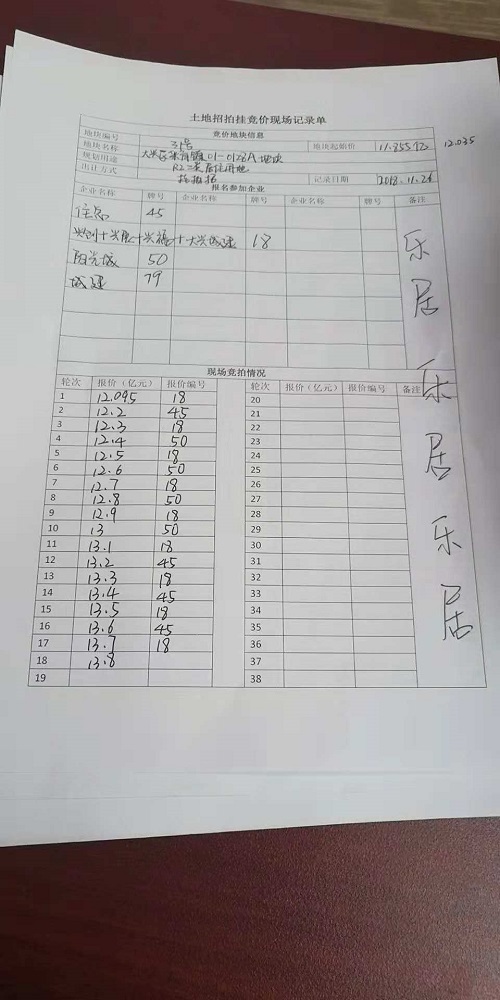 土地招拍挂竞价现场记录单
竞价地块信息
地块编号 31号 地块起始价 11.855亿 12.035
地块名称 大兴区 01-0128A地块
规划用途 R2二类居住用地
出让方式 记录日期 2018.11.26
报名参加企业
企业名称 牌号 企业名称 牌号 企业名称 牌号 备注
住总 45
兴创+兴展+兴福+大兴城建 18
阳光城 50
城建 79
乐
居
乐
居
乐
居
现场竞拍情况
轮次 报价（亿元） 报价编号 轮次 报价（亿元） 报价编号 备注
1 12.095 18 20
2 12.2 45 21
3 12.3 18 22
4 12.4 50 23
5 12.5 18 24
6 12.6 50 25
7 12.7 18 26
8 12.8 50 27
9 12.9 18 28
10 13 50 29
11 13.1 18 30
12 13.2 45 31
13 13.3 18 32
14 13.4 45 33
15 13.5 18 34
16 13.6 45 35
17 13.7 18 36
18 13.8 37
19 38